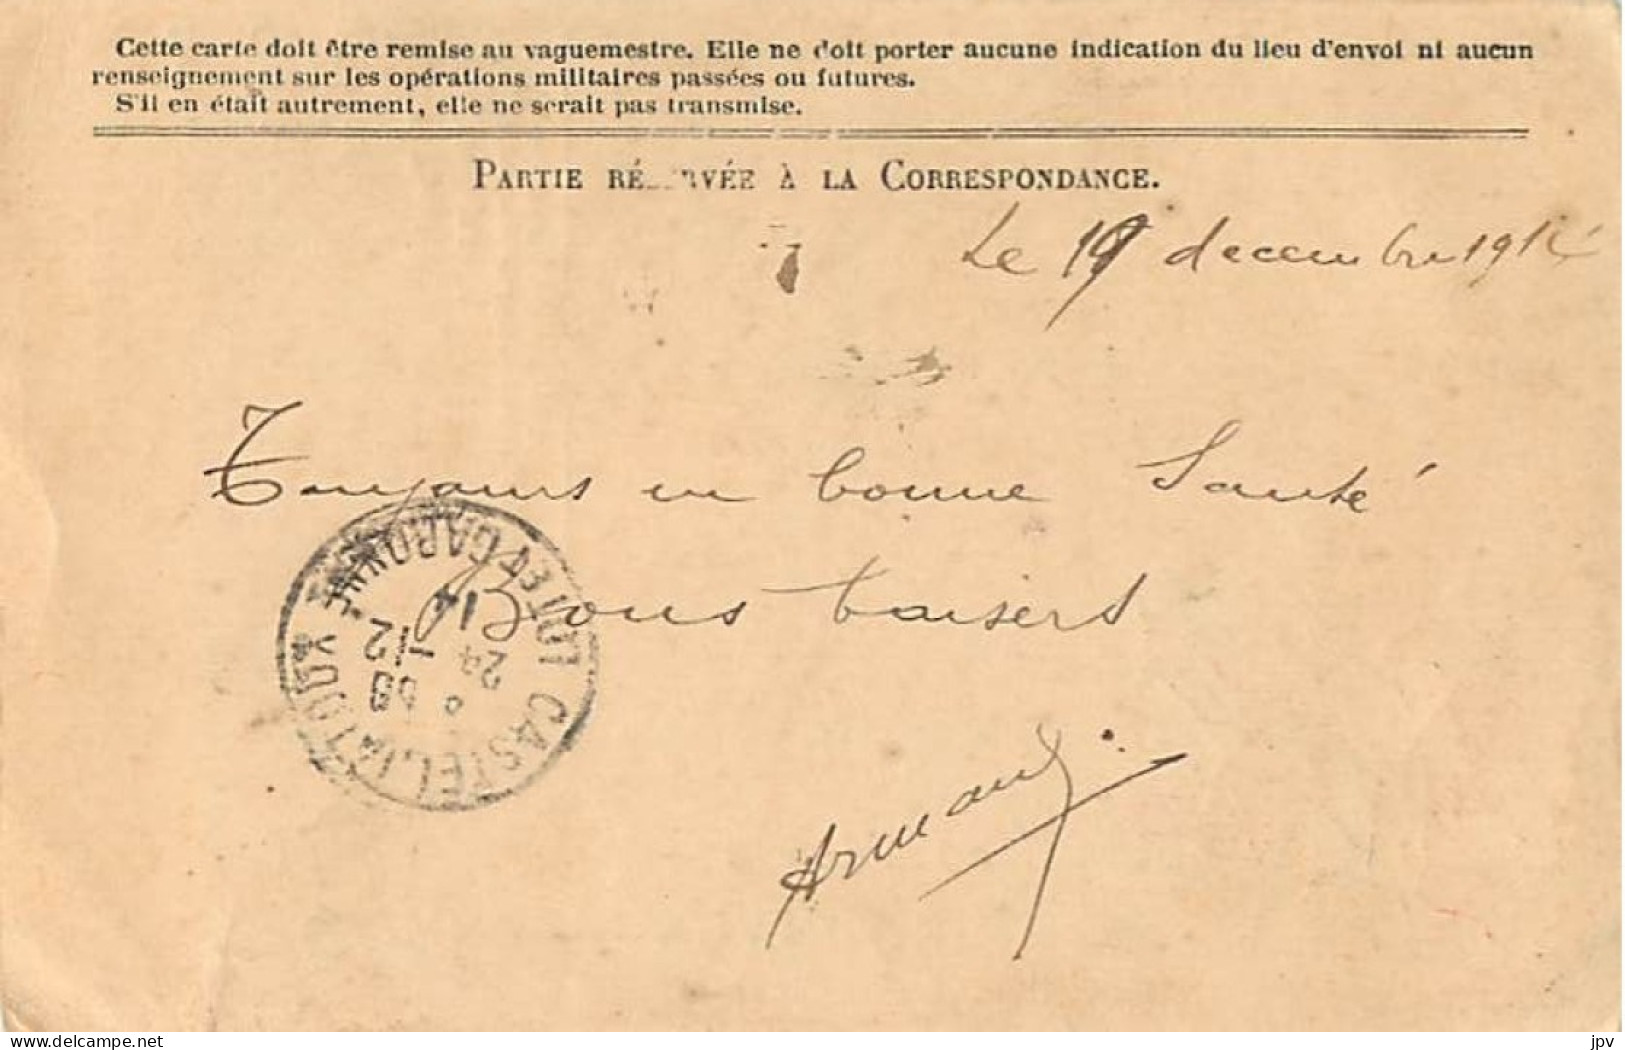 Cette carte doit être remise au vaguemestre. Elle ne doit porter aucune indication du lieu d'envoi ni aucun
renseignement sur les opérations militaires passées ou futures.
S'il en était autrement, elle ne serait pas transmise.
PARTIE RÉSERVÉE À LA CORRESPONDANCE.
Le 19 decembre 1914
Toujours en bonne Santé
Bons baisers
Armand
CASTELJALOUX
LOT-ET-GARONNE
24
12
14
delcampe.net
jpv